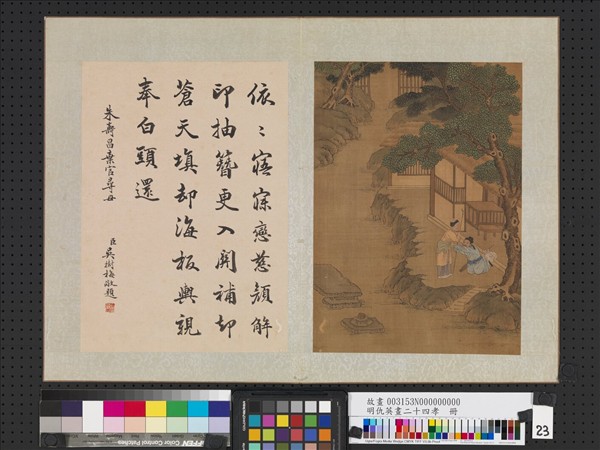 依〻寤寐戀慈顏解
印抽簪更入關補却
蒼天填却海板輿親
奉白頭還
朱壽昌棄官尋母
臣吳樹梅敬題
故畫 003153N000000000
明仇英畫二十四孝 冊
23
Color Control Patches